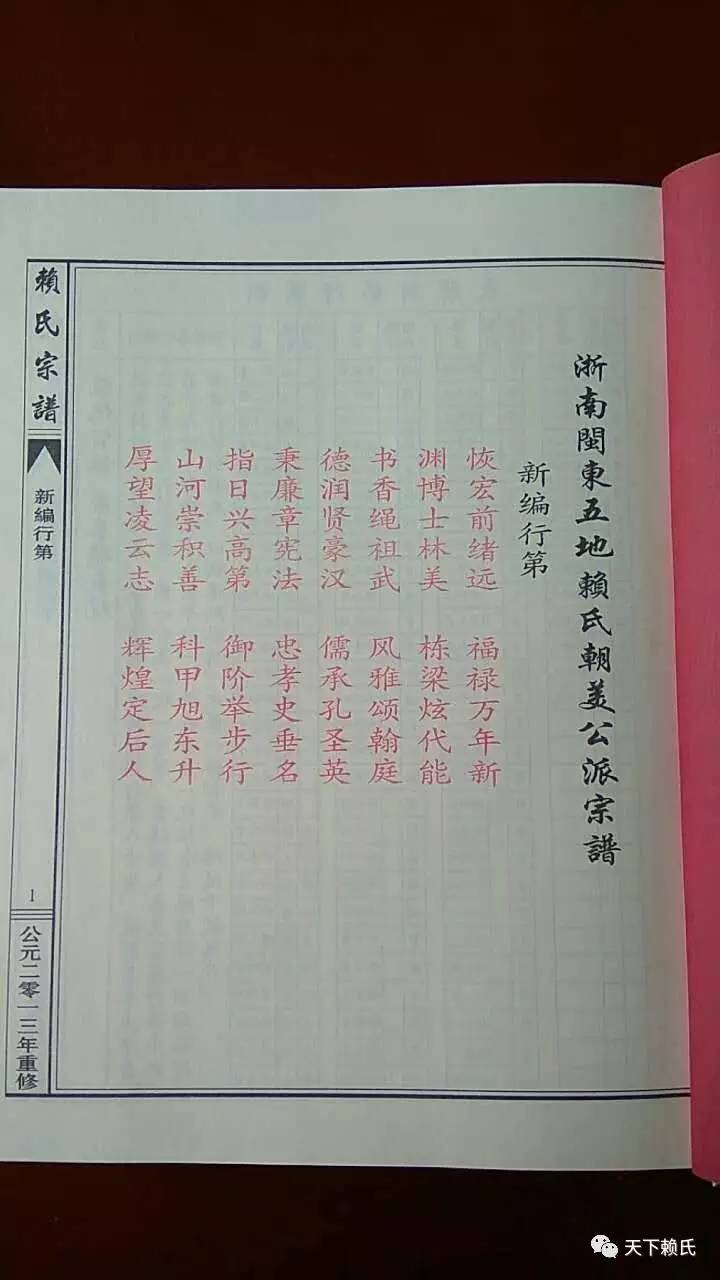 浙南閩東五地賴氏朝美公派宗譜
新编行第
恢宏前绪远 福禄万年新
渊博士林美 栋梁炫代能
书香绳祖武 风雅颂翰庭
德润贤豪汉 儒承孔圣英
秉廉章宪法 忠孝史垂名
指日兴高第 御阶举步行
山河崇积善 科甲旭东升
厚望凌云志 辉煌定后人
賴氏宗譜
新编行第
1
公元二零一三年重修
天下赖氏